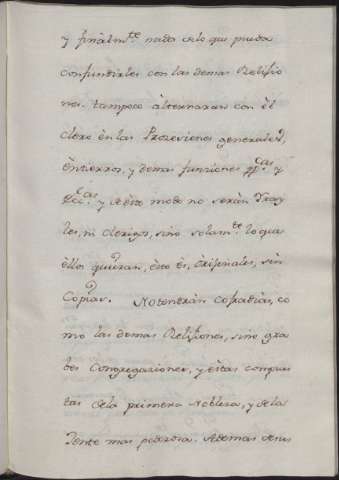 y finalmte. nada de lo que pueda
confundirles con las demas Relixio
nes. tampoco alternaran con el
clero en las Prosesiones generales,
entierros, y demas funciones ppcas. y
y de este modo no seràn Fray
les, ni clerigos, sino solamte. lo que
ellos quieran, esto es, òrixinales, sin
Copias. No tendràn cofradias, co
mo las demas Relixiones, sino gra
bes Congregaciones, y estas compues
tas de la primera Nobleza, y de la
Jente mas poderosa. Ademas de sus